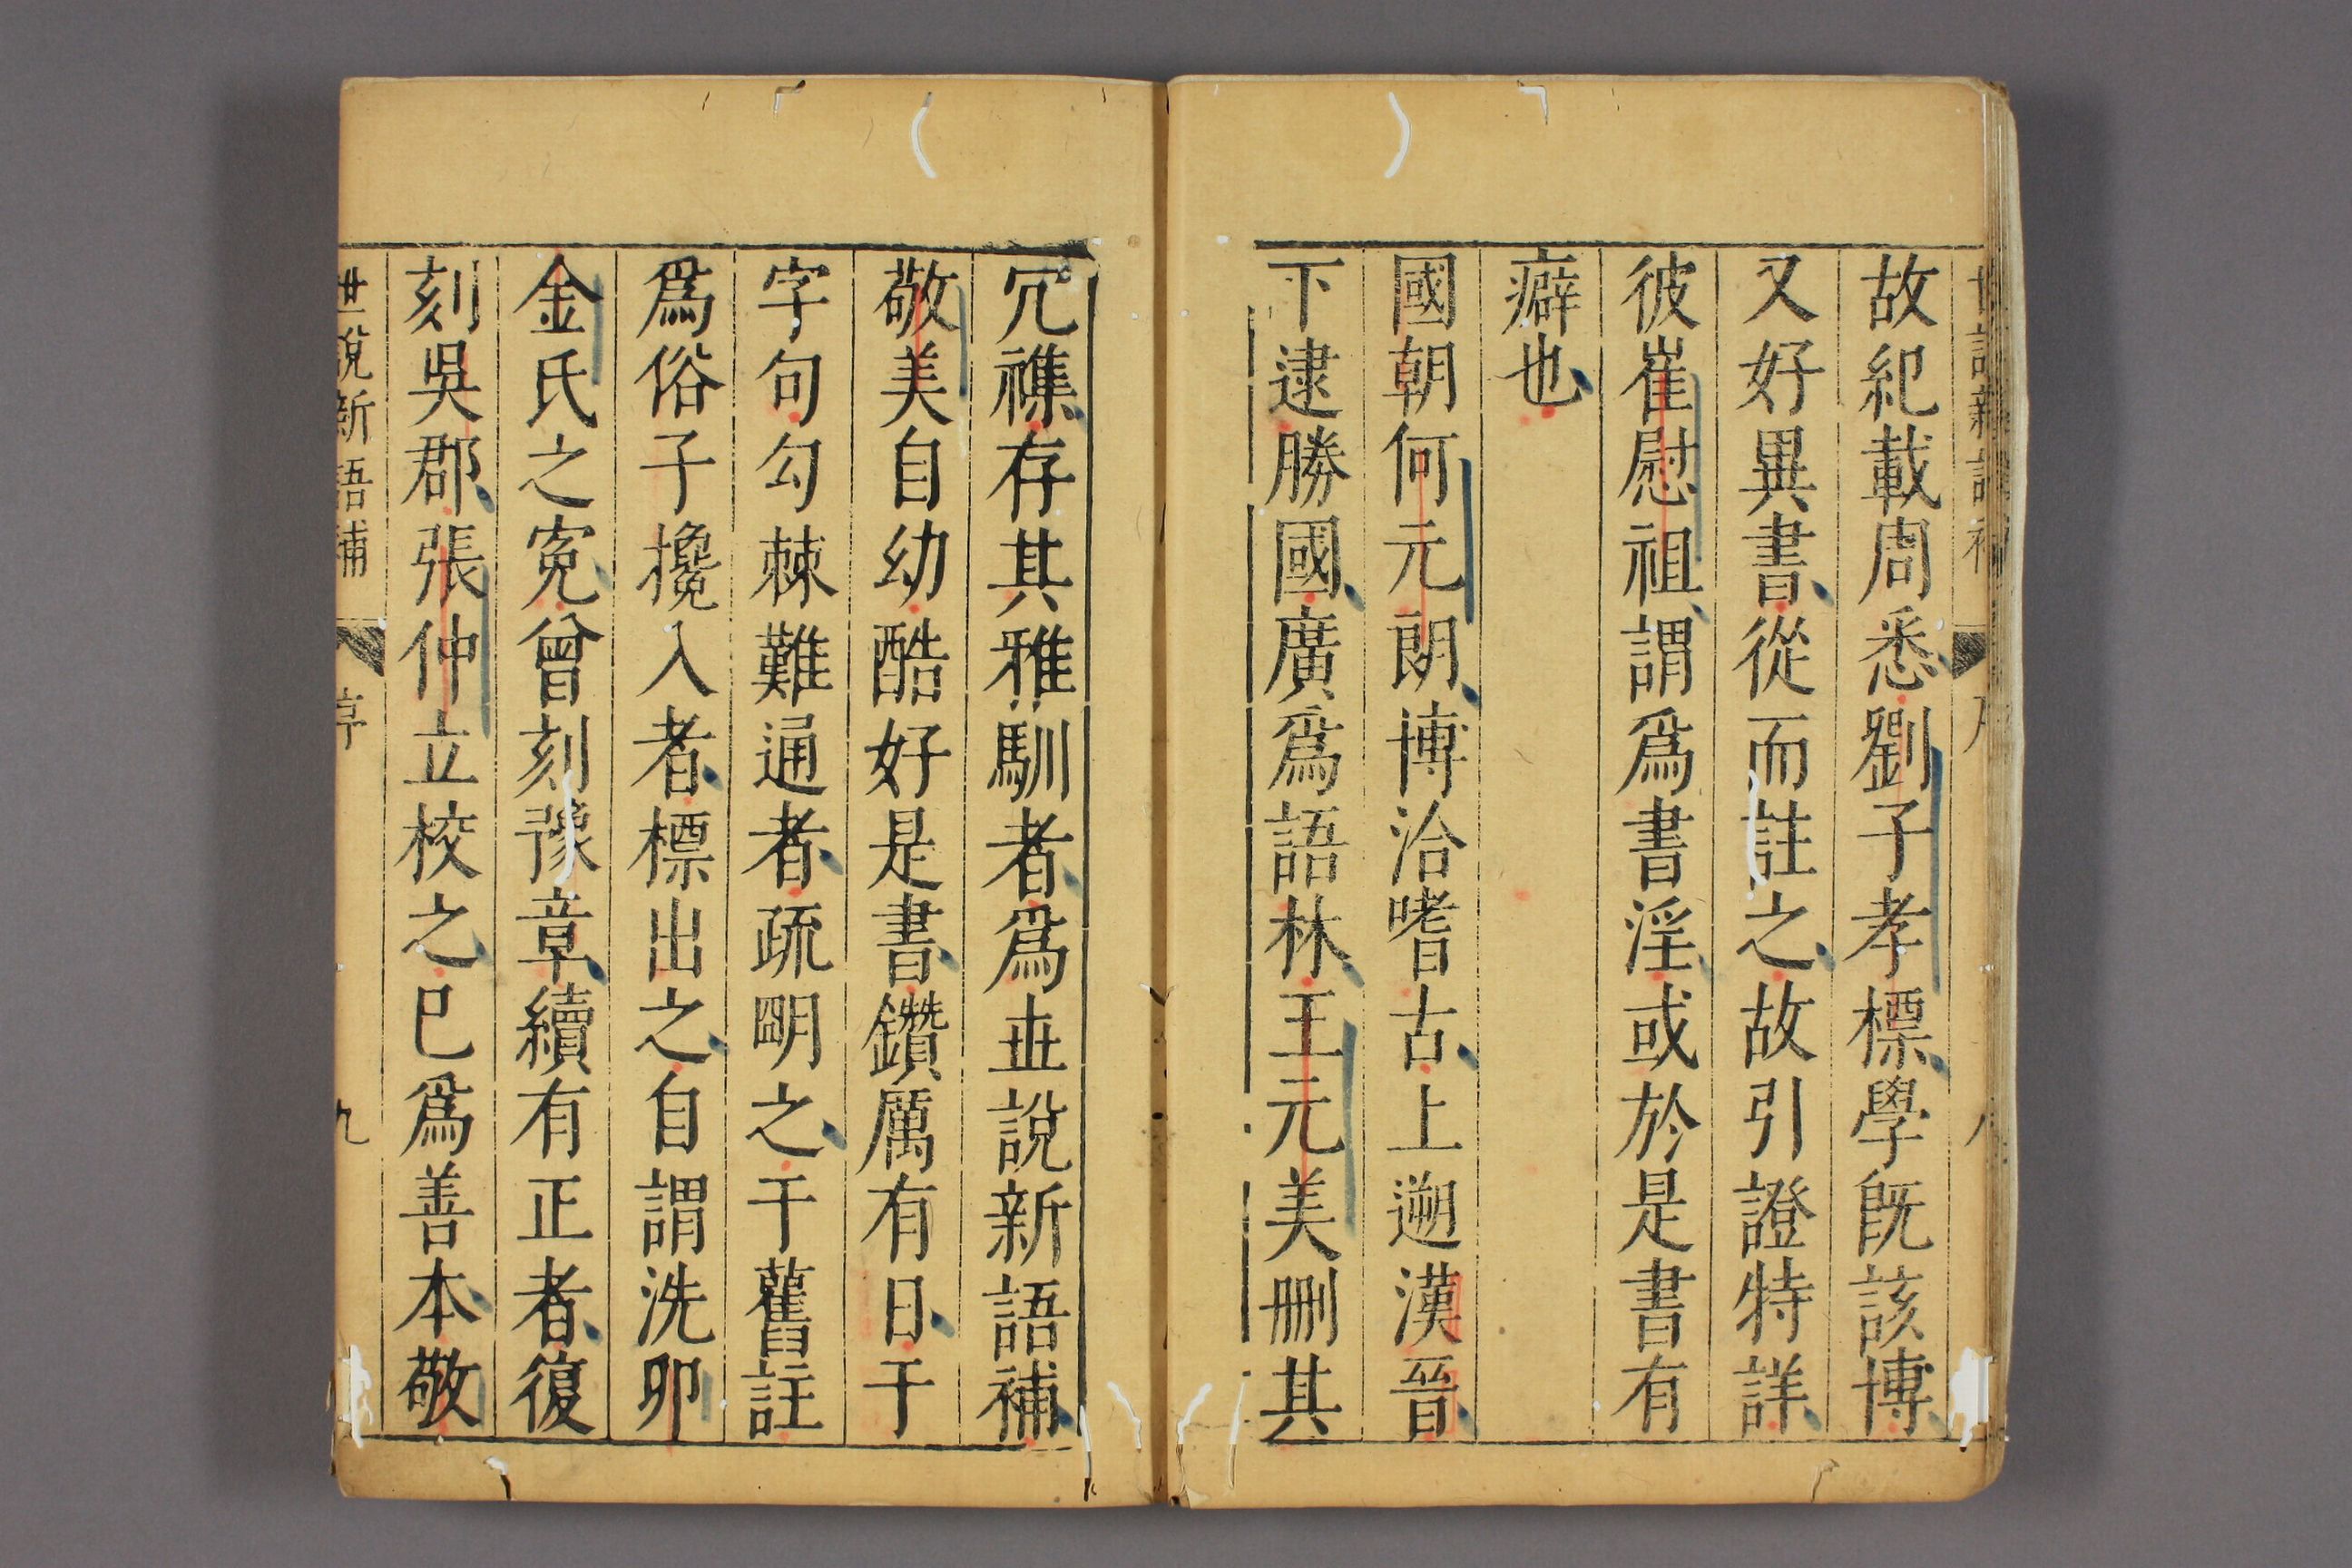 故紀載周悉劉子孝標學旣該博
又好異書從而註之故引證特詳
彼崔慰祖謂爲書淫或於是書有
癖也
國朝何元朗博洽嗜古上遡漢晉
下逮勝國廣爲語林王元美刪其
冗襍存其雅馴者爲世說新語補
敬美自幼酷好是書鑽厲有日于
字句勾棘難通者疏明之于舊註
爲俗子攙入者標出之自謂洗卯
金氏之寃曾刻豫章續有正者復
刻吳郡張仲立校之已爲善本敬
世說新語補 序 九